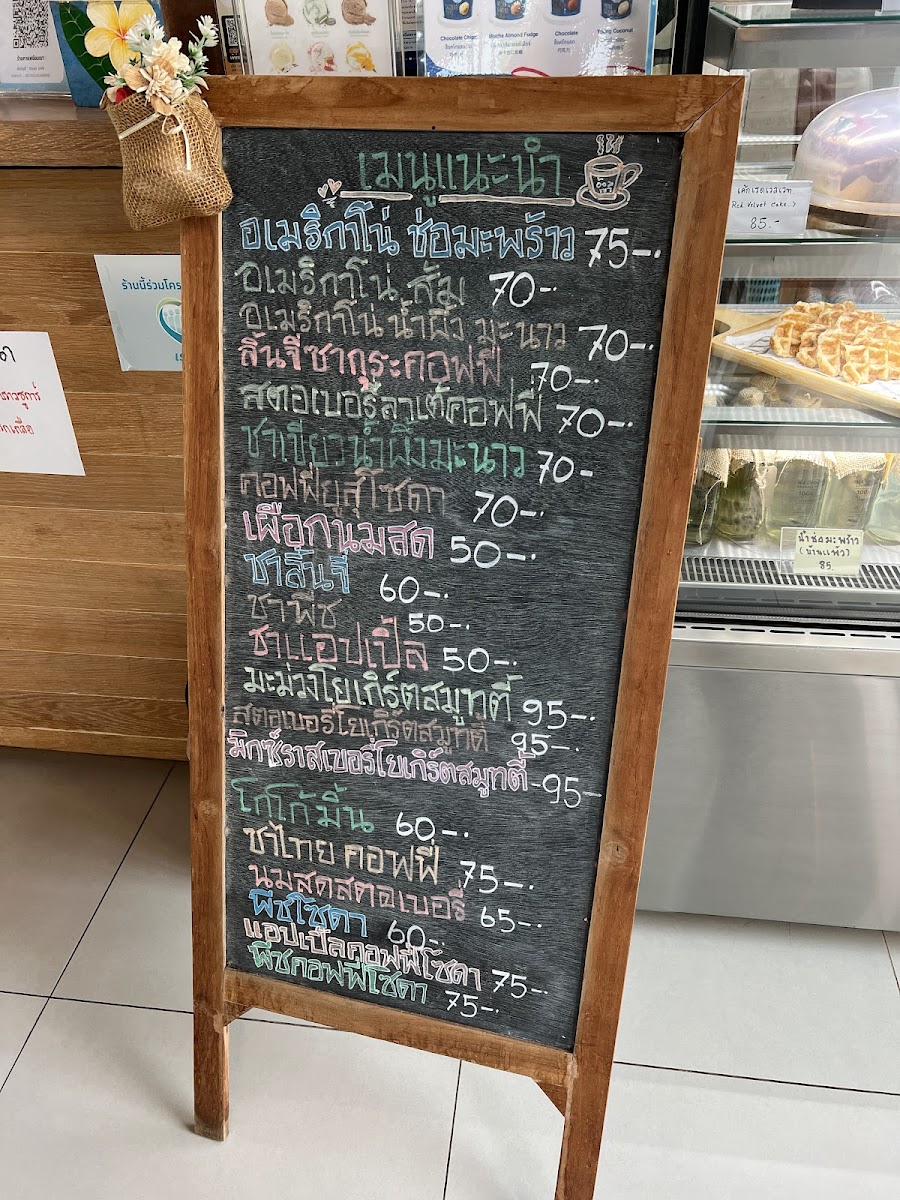 Chocolate Chip
Mocha Almond Fudge
Young Coconut
ร้านนี้ร่วมโคร
เมนูแนะนำ
อเมริกาโน่ ช่อมะพร้าว 75-.
อเมริกาโน่ ส้ม 70-.
อเมริกาโน่ น้ำผึ้ง มะนาว 70-.
ลิ้นจี่ซากุระคอฟฟี่ 70-.
สตอเบอรี่ลาเต้คอฟฟี่ 70-.
ชาเขียวน้ำผึ้งมะนาว 70-
คอฟฟี่ยูสุโซดา 70-.
เผือกนมสด 50-.
ชาลิ้นจี่ 60-.
ชาพีช 50-.
ชาแอปเปิ้ล 50-.
มะม่วงโยเกิร์ตสมูทตี้ 95-.
สตอเบอรี่โยเกิร์ตสมูทตี้ 95-.
มิกซ์ราสเบอรี่โยเกิร์ตสมูทตี้ -95-.
โกโก้มิ้น 60-.
ชาไทย คอฟฟี่ 75-.
นมสดสตอเบอรี่ 65-.
พีชโซดา 60-.
แอปเปิ้ลคอฟฟี่โซดา 75-.
พีชคอฟฟี่โซดา 75-.
เค้กเรดเวลเวท
Red Velvet Cake
85.-
น้ำช่อมะพร้าว
(บ้านแพ้ว)
85.